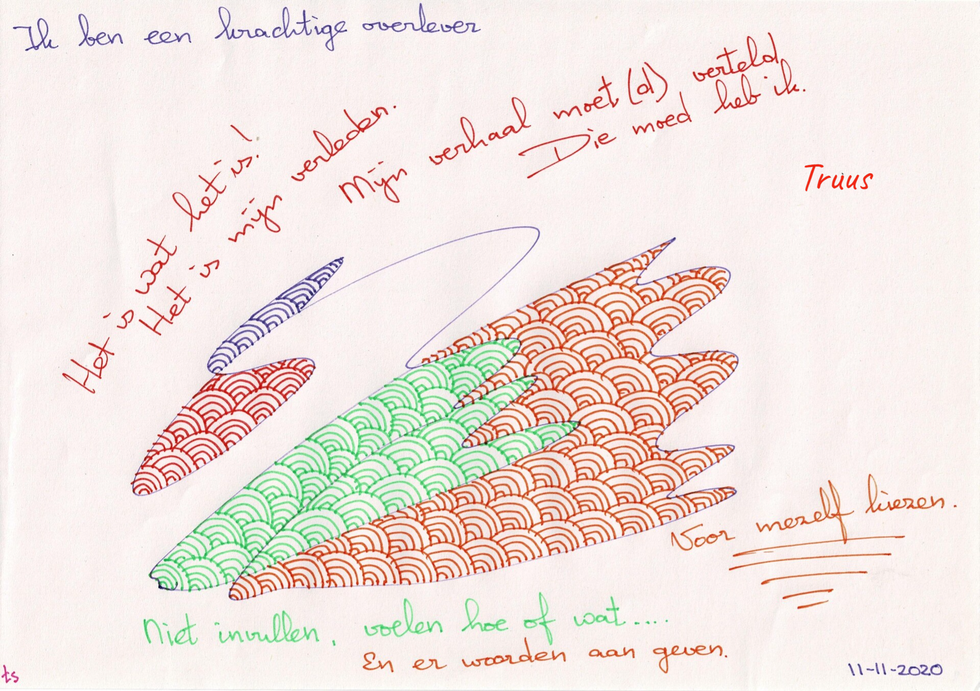 Ik ben een krachtige overlever
Het is wat het is!
Het is mijn verleden.
Mijn verhaal moet(d) verteld
Die moed heb ik.
Truus
Voor mezelf kiezen.
Niet invullen, voelen hoe of wat....
En er woorden aan geven.
ts
11-11-2020